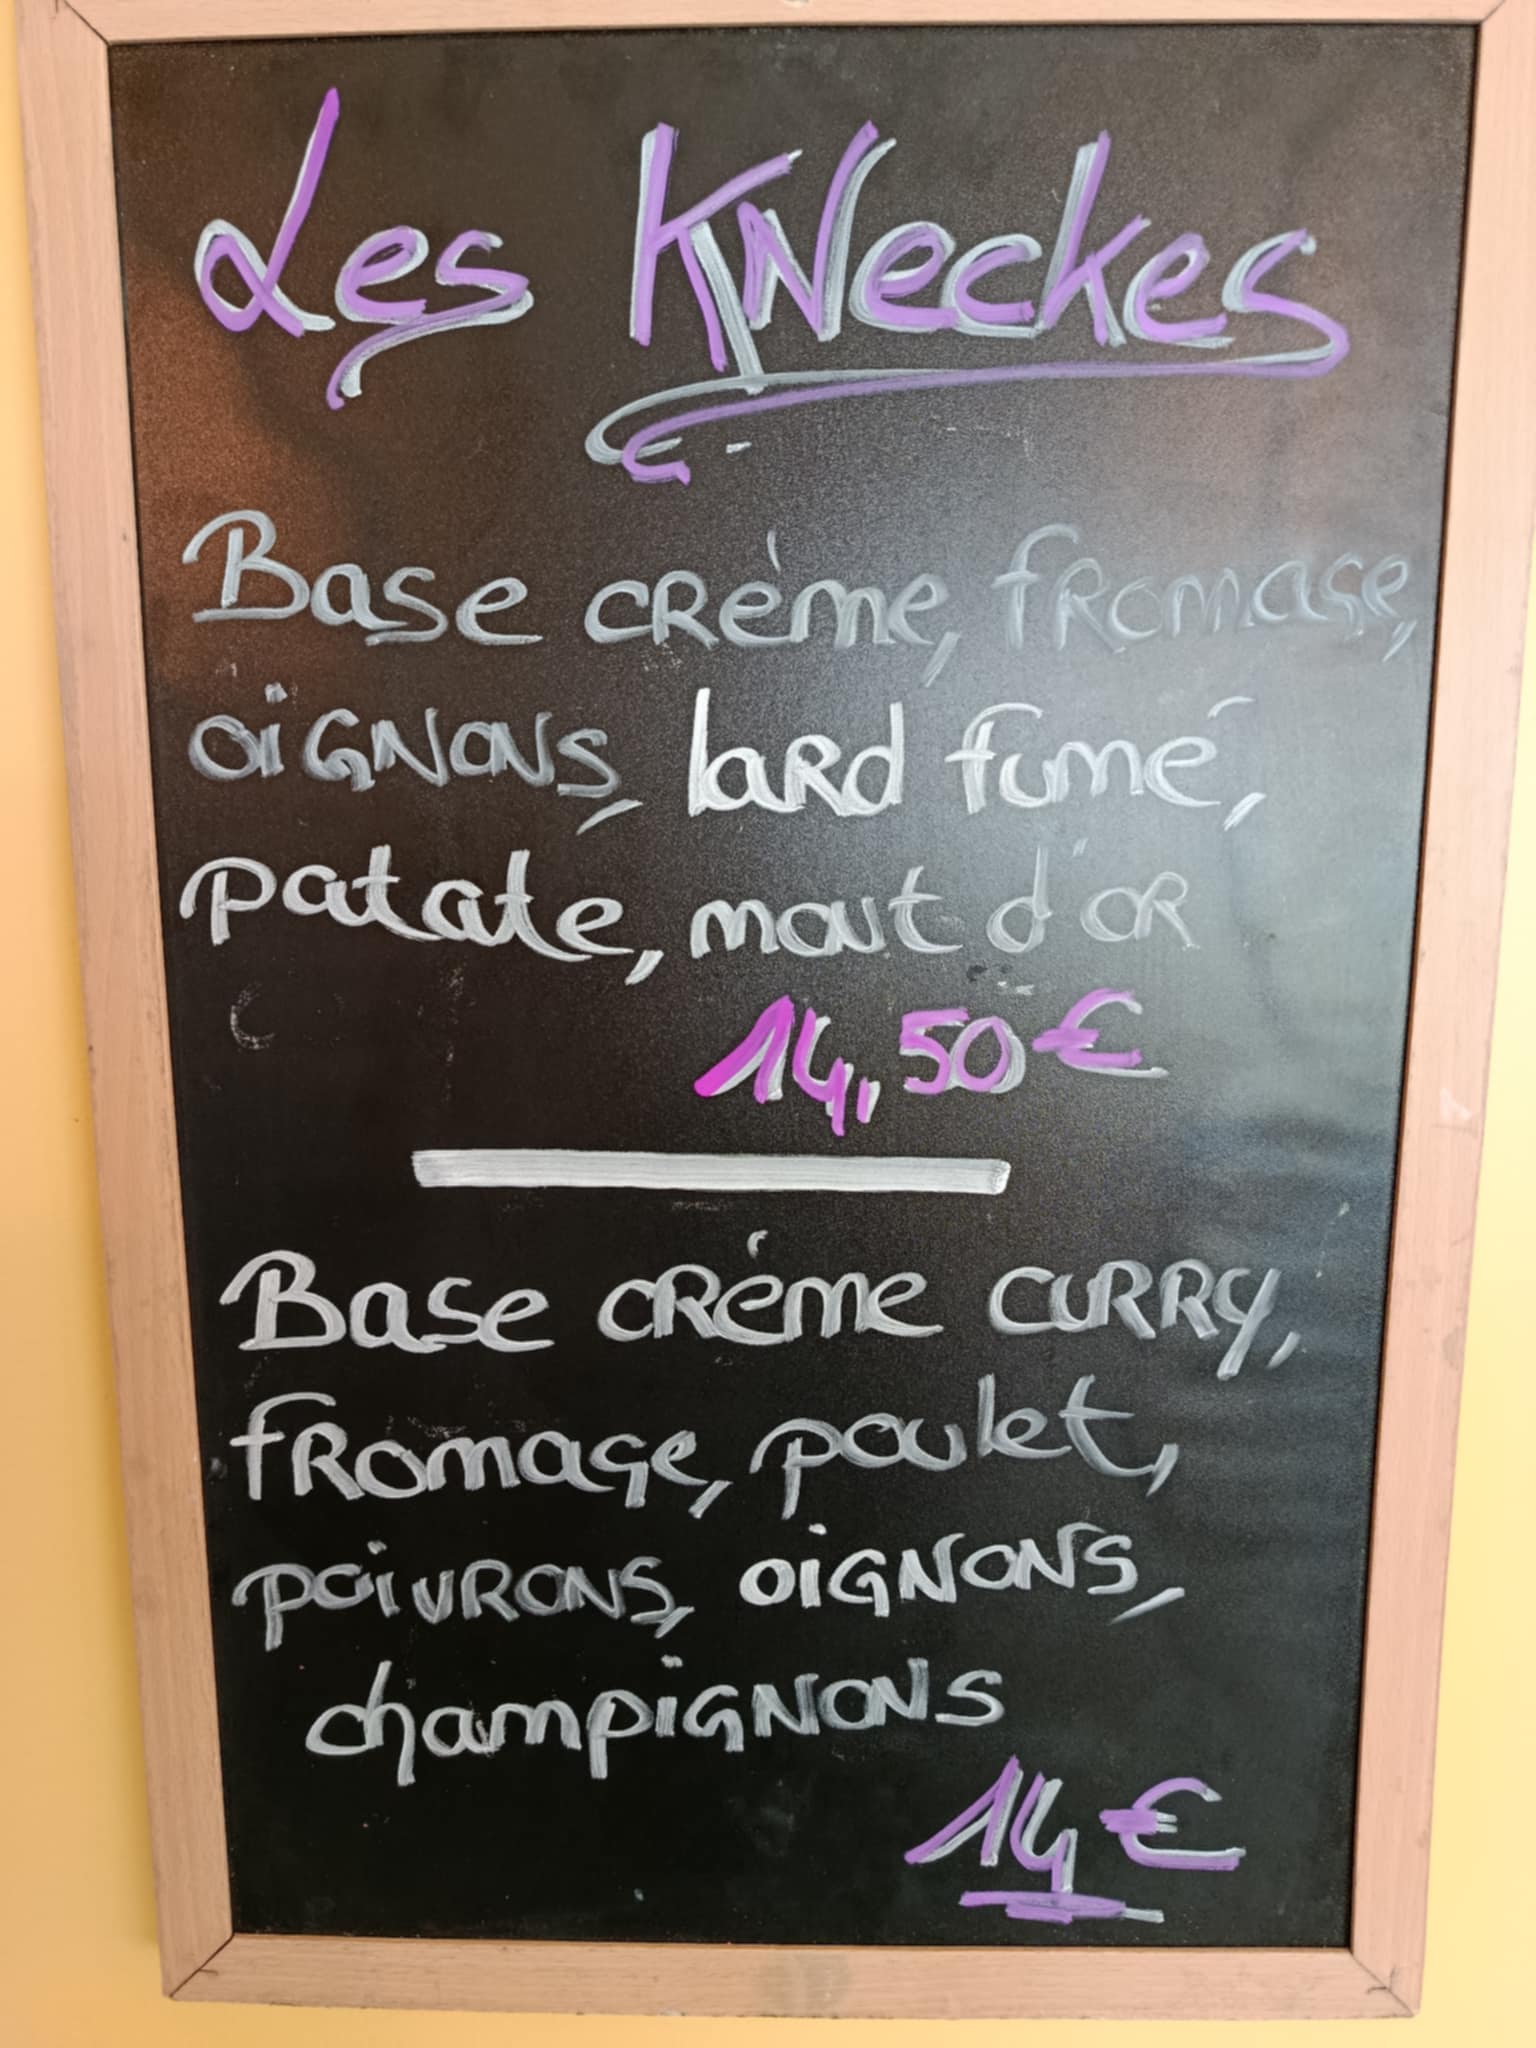 Les KNeckes
Base crème, fromage,
oignons, lard fumé,
patate, mont d'or
14,50€
Base crème curry,
fromage, poulet,
poivrons, oignons,
champignons
14€